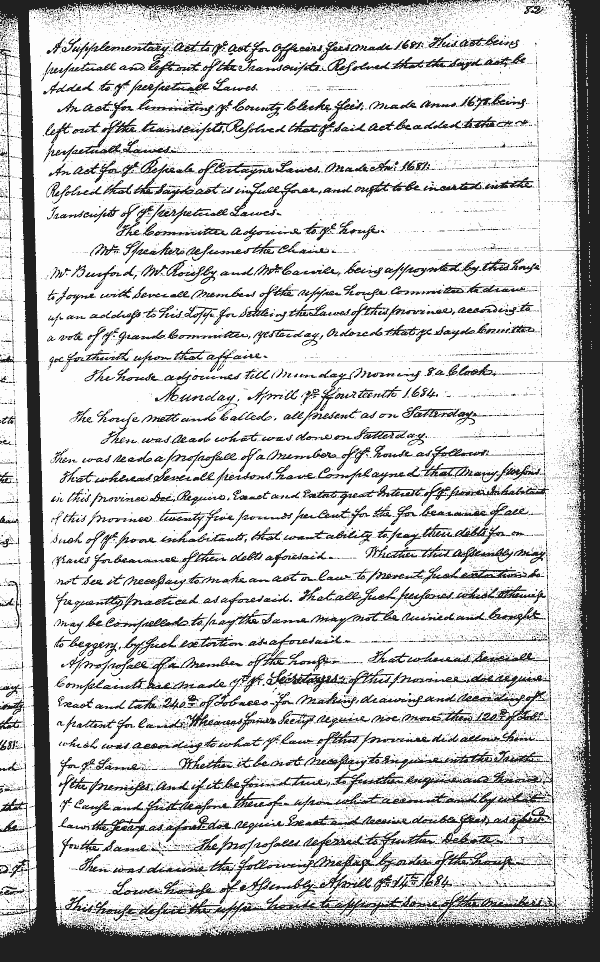 82
A Supplementary Act to ye Act for Officers fees made 1681. This act being
perpetuall and left out of the Transcripts. Resolved that the sayd act, be
Added to ye perpetuall Lawes.
An Act for limmiting ye County Clerks fees. made anno 1678. being
left out of the transcripts, Resolved that ye said Act be added to the
perpetuall Lawes.
An Act for ye Repeale of Certayne Lawes. made Ano. 1681.
Resolved that the sayd act is in full force, and ought to be incerted into the
Transcripts of ye perpetuall Lawes.
The Committee adjourne to ye house.
Mr. Speaker assumes the Chaire.
Mr. Burford, Mr. Rousby and Mr. Carvile, being appoynted by this house
to Joyne with Severall Members of the upper house Committee to draw
up an address to his Lopp for Settling the Lawes of this province, according to
a vote of ye Grande Committee, yesterday, Ordered that ye sayd Committee
goe forthwith upon that affaire.
The house adjournes till Munday Morning 8 a Clock.
Munday, Aprill ye ffourteenth 1684.
The house mett and Called, all present as on Satterday.
Then was read what was done on Satterday.
Then was read a proposall of a Member of ye house as follows.
That whereas Severall persons have Complayned that many persons
in this province Doe, Require, Exact and Extort great Interest of ye poore inhabitants
of this province twenty five pounds per Cent for the for bearance of all
Such of ye poore inhabitants, that want ability to pay their debts for on
yeares forbearance of their debts aforesaid. Whether this Assembly may
not see it necessary to make an act or law to prevent Such extortion be
frequently practiced as aforesaid. That all Such persons which
may be Compelled to pay the Same may not be ruined and brought
to beggery, by Such extortion as aforesaid.
A proposall of a Member of the house. That whereas Severall
Complaints are made yt ye Secretarys of this province, doe require
Exact and take 240lb of Tobacco for making, drawing and recording of
a pattent for land. Whereas former Sectys require noe more then 120lb of Tobo
which was according to what ye law of this province did allow him
for ye Same. Whether it be not necessary to Enquire into the Truth
of the premises, And if it be found true, to further enquire and know
ye Cause and Just reason thereof upon what account and by what
law the Secrys as aforesd doe require Exact and receive double fees, as aforesd
for the Same. The proposalls referred to further Debate.
Then was drawne the following Message by order of the house.
Lower house of Assembly Aprill ye 14th 1684.
This house desire the upper house to appoynt Some of the members